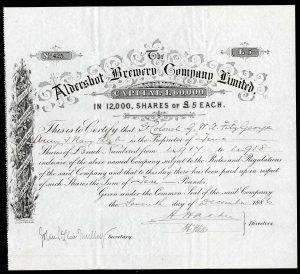 The
Aldershot Brewery Company Limited
CAPITAL £60,000
IN 12,000, SHARES OF £5 EACH.
This is to Certify that Colonel G. W. A. FitzGeorge
is the Proprietor of Ten
Shares of £5 each Numbered from to
inclusive, of the above named Company subject to the Rules and Regulations
of the said Company and that to this day there has been paid up in respect
of such Shares the Sum of Ten Pounds.
Given under the Common Seal of the said Company
the Seventh day of December 1886
Directors
Secretary